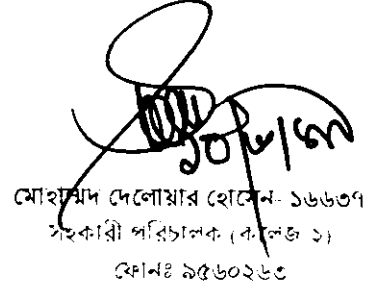 মোহাম্মদ দেলোয়ার হোসেন- ১৬৬৩৭
সহকারী পরিচালক (কলেজ ২)
ফোনঃ ৯৫৬০২৬৩